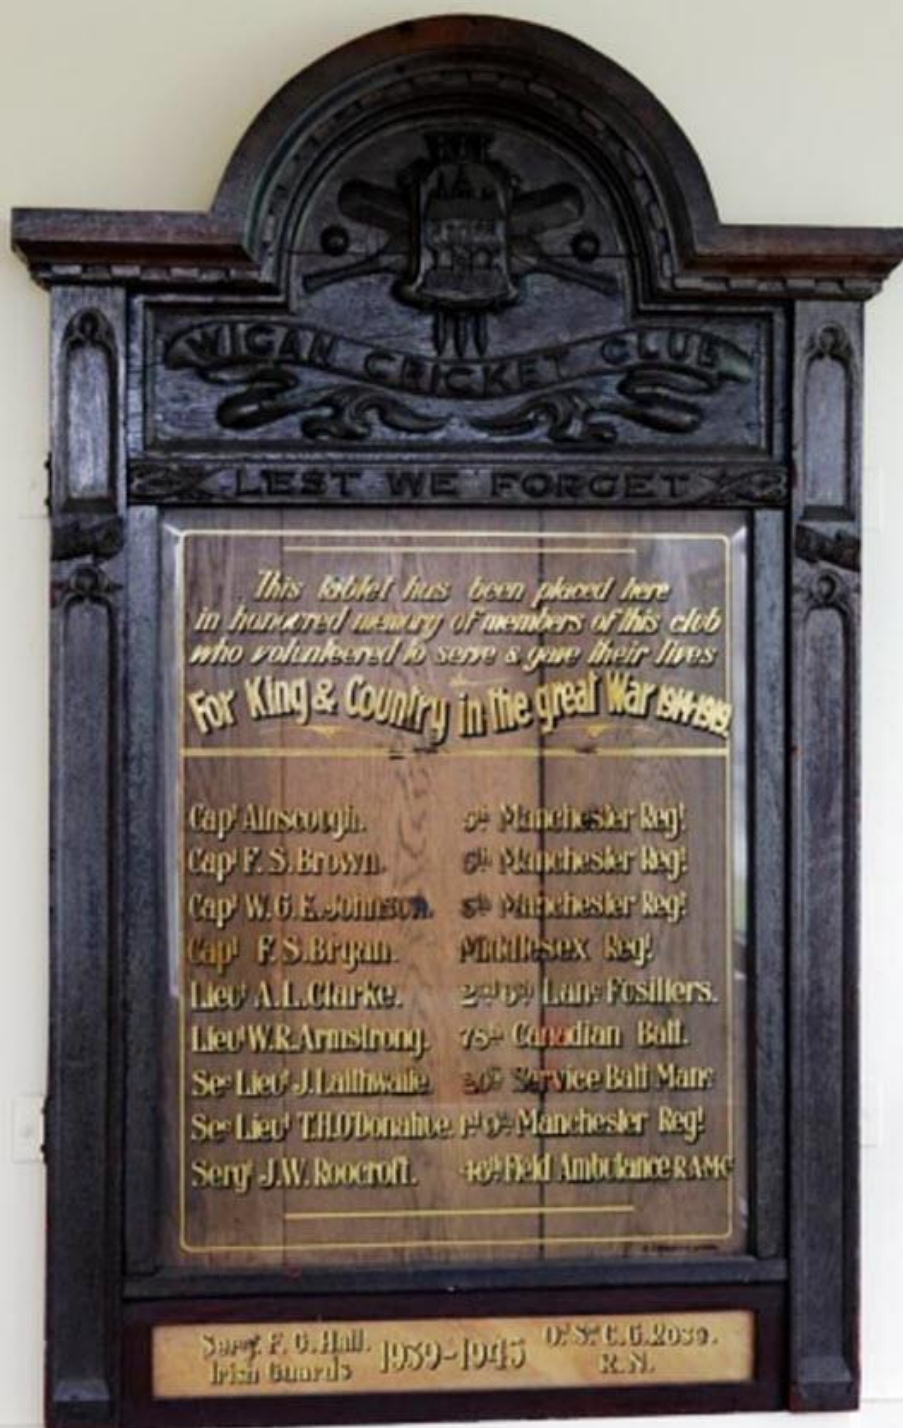 WIGAN CRICKET CLUB
LEST WE FORGET
This tablet has been placed here
in honoured memory of members of this club
who volunteered to serve & gave their lives
For King & Country in the great War 1914-1919.
Capt Ainscough. 5th Manchester Regt
Capt F. S. Brown. 5th Manchester Regt
Capt W. G. E. Johnson. 5th Manchester Regt
Capt F. S. Bryan. Middlesex Regt
Lieut A. L. Clarke. 2nd 6th Lanc Fusiliers.
Lieut W. R. Armstrong. 78th Canadian Batt.
Sec Lieut J. Laithwaite. 20th Service Batt Manc
Sec Lieut T. H. O'Donahue. Manchester Regt
Sergt J. W. Roocroft. 46th Field Ambulance R.A.M.C
Sergt F. G. Hall. 1939-1945 C. G. Rose.
Irish Guards R.N.